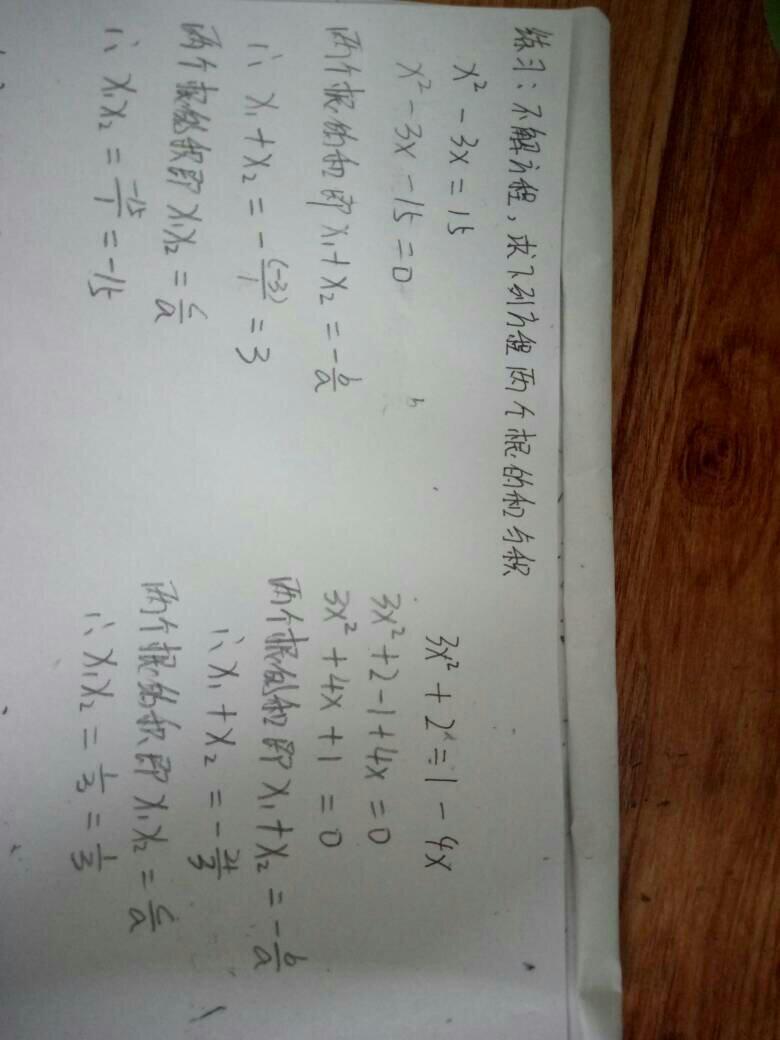 练习：不解方程，求下列方程两个根的和与积
x² - 3x = 15
x² - 3x - 15 = 0
两个根的和即 x₁ + x₂ = -b/a
∴ x₁ + x₂ = -(-3)/1 = 3
两个根的积即 x₁x₂ = c/a
∴ x₁x₂ = -15/1 = -15
3x² + 2 = 1 - 4x
3x² + 2 - 1 + 4x = 0
3x² + 4x + 1 = 0
两个根的和即 x₁ + x₂ = -b/a
∴ x₁ + x₂ = -4/3
两个根的积即 x₁x₂ = c/a
∴ x₁x₂ = 1/3 = 1/3